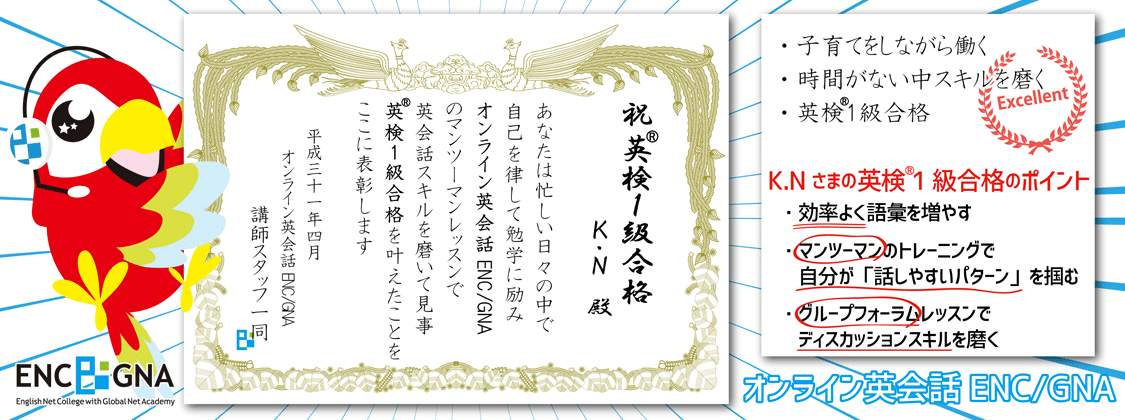 祝英検®1級合格
K.N 殿
あなたは忙しい日々の中で
自己を律して勉学に励み
オンライン英会話ENC/GNA
のマンツーマンレッスンで
英会話スキルを磨いて見事
英検®1級合格を叶えたことを
ここに表彰します
平成三十一年四月
オンライン英会話ENC/GNA
講師スタッフ一同
・子育てをしながら働く
・時間がない中スキルを磨く
・英検®1級合格
Excellent
K.Nさまの英検®1級合格のポイント
・効率よく語彙を増やす
・マンツーマンのトレーニングで
自分が「話しやすいパターン」を掴む
・グループフォーラムレッスンで
ディスカッションスキルを磨く
ENC GNA
English Net College with Global Net Academy
オンライン英会話 ENC/GNA